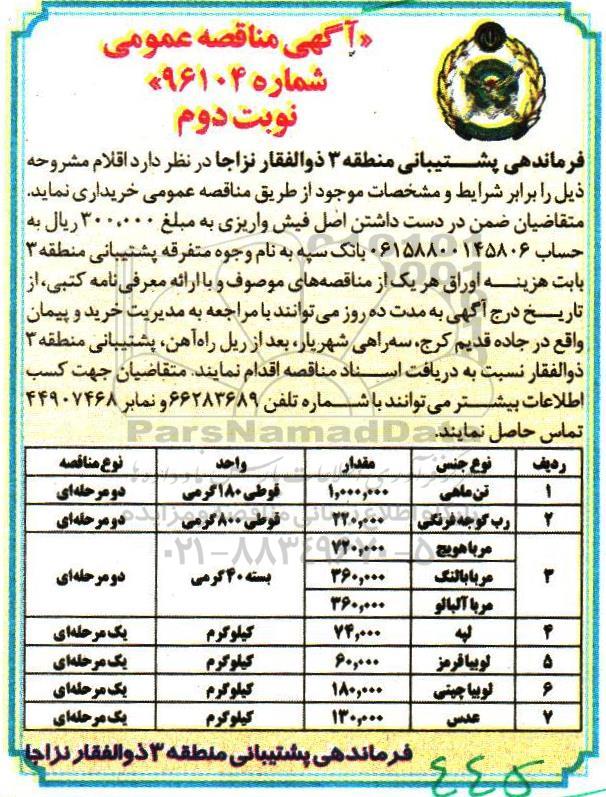 «آگهی مناقصه عمومی
شماره ۹۶۱۰۴»
نوبت دوم
فرماندهی پشتیبانی منطقه ۳ ذوالفقار نزاجا در نظر دارد اقلام مشروحه
ذیل را برابر شرایط و مشخصات موجود از طریق مناقصه عمومی خریداری نماید.
متقاضیان ضمن در دست داشتن اصل فیش واریزی به مبلغ ۳۰۰،۰۰۰ ریال به
حساب ۰۶۱۵۸۸۰۰۱۴۵۸۰۶ بانک سپه به نام وجوه متفرقه پشتیبانی منطقه ۳
بابت هزینه اوراق هر یک از مناقصه‌های موصوف و با ارائه معرفی‌نامه کتبی، از
تاریخ درج آگهی به مدت ده روز می‌توانند با مراجعه به مدیریت خرید و پیمان
واقع در جاده قدیم کرج، سه‌راهی شهریار، بعد از ریل راه‌آهن، پشتیبانی منطقه ۳
ذوالفقار نسبت به دریافت اسناد مناقصه اقدام نمایند. متقاضیان جهت کسب
اطلاعات بیشتر می‌توانند با شماره تلفن ۶۶۲۸۳۶۸۹ و نمابر ۴۴۹۰۷۴۶۸
تماس حاصل نمایند.
ParsNamadData
ردیف نوع جنس مقدار واحد نوع مناقصه
۱ تن ماهی ۱,۰۰۰,۰۰۰ قوطی ۱۸۰ گرمی دو مرحله‌ای
۲ رب گوجه فرنگی ۲۲۰,۰۰۰ قوطی ۸۰۰ گرمی دو مرحله‌ای
۳ مربا هویج ۷۲۰,۰۰۰ بسته ۴۰ گرمی دو مرحله‌ای
مربا بالنگ ۳۶۰,۰۰۰
مربا آلبالو ۳۶۰,۰۰۰
۴ لپه ۷۴,۰۰۰ کیلوگرم یک مرحله‌ای
۵ لوبیا قرمز ۶۰,۰۰۰ کیلوگرم یک مرحله‌ای
۶ لوبیا چیتی ۱۸۰,۰۰۰ کیلوگرم یک مرحله‌ای
۷ عدس ۱۳۰,۰۰۰ کیلوگرم یک مرحله‌ای
فرماندهی پشتیبانی منطقه ۳ ذوالفقار نزاجا